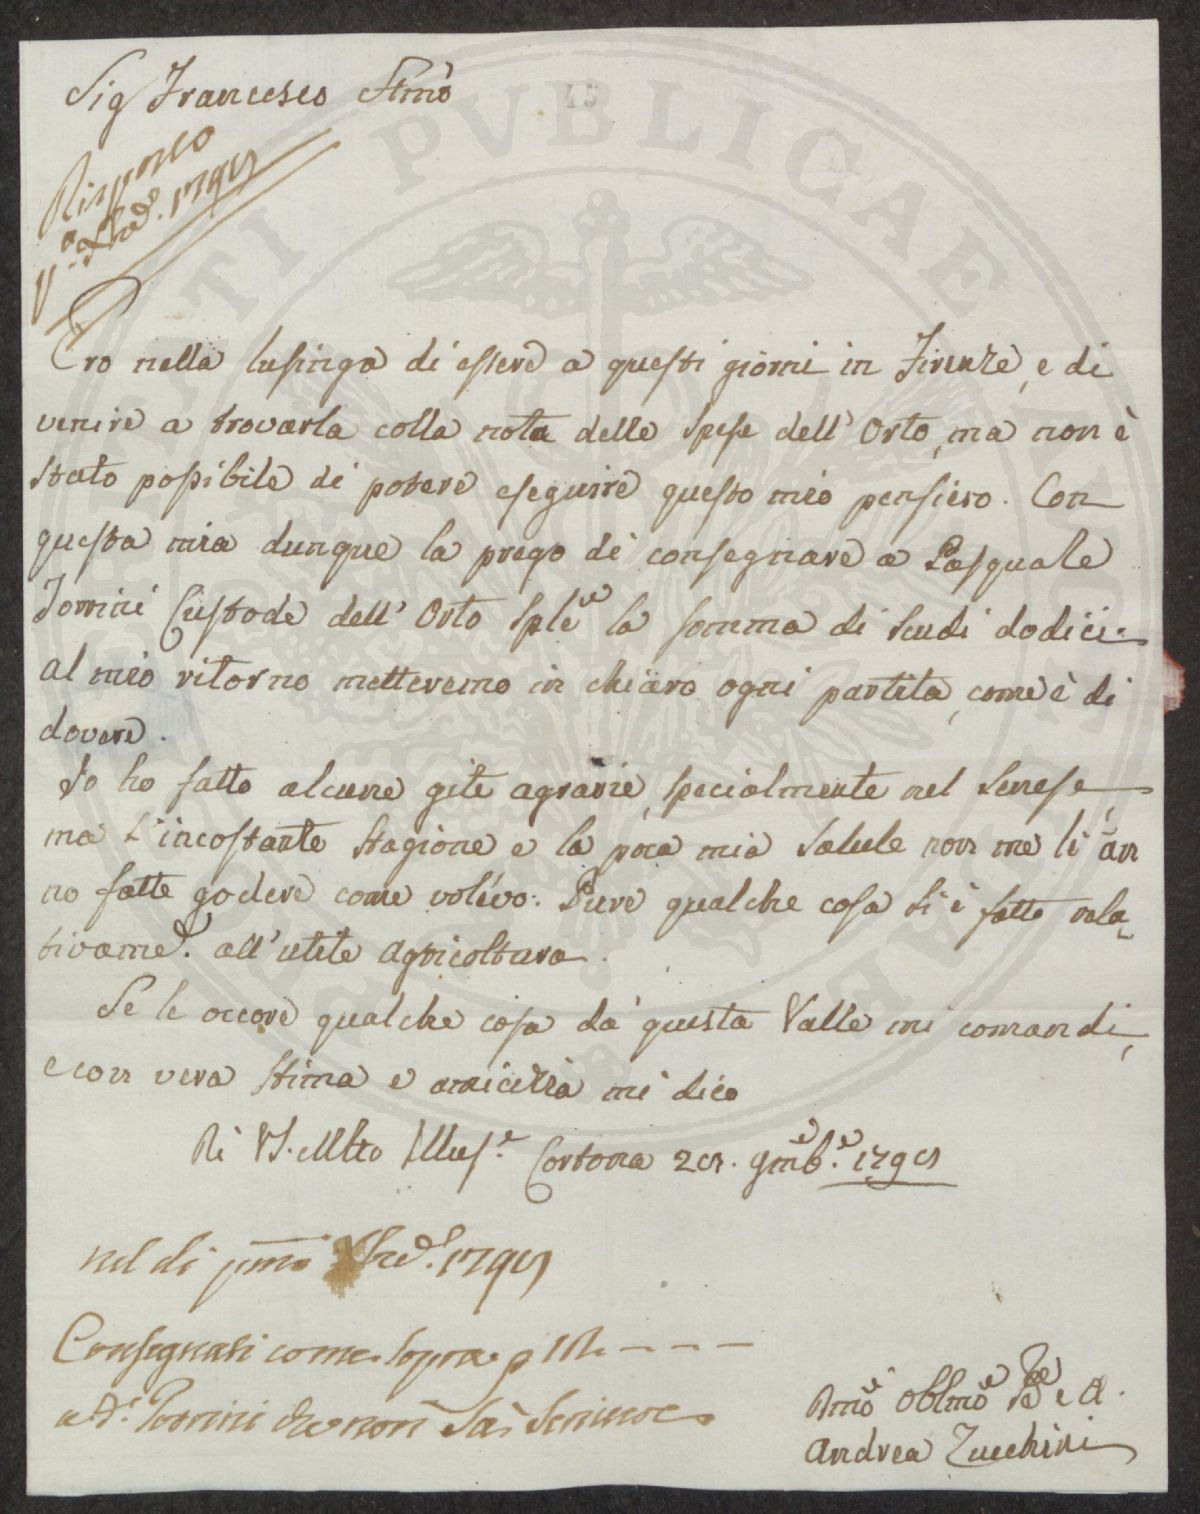 Sig Francesco Stmo
Risposto
Era nella lusinga di essere a questi giorni in Firenze, e di
venire a trovarla colla nota delle spese dell' Orto, ma non è
stato possibile di potere eseguire questo mio pensiero. Con
questa mia dunque la prego di consegnare a Pasquale
Tonini Custode dell' Orto Sple la somma di scudi dodici.
al mio ritorno metteremo in chiaro ogni partita, come è di
dovere.
Io ho fatto alcune gite agrarie, specialmente nel Senese,
ma l'incostante stagione e la poca mia salute non me li an
no fatte godere come volevo. Pure qualche cosa si è fatto rela
tivame. all'utile Agricoltura.
Se le occore qualche cosa da questa Valle mi comandi,
e con vera stima e amicizia mi dico
Di VS. Molto Illus.e Cortona 9mbe.
nel di pmo
Consegnati come sopra p
a d. Tonini che non sa scrivere
Dmo Oblmo Se e A.
Andrea Zucchini
PUBLICAE